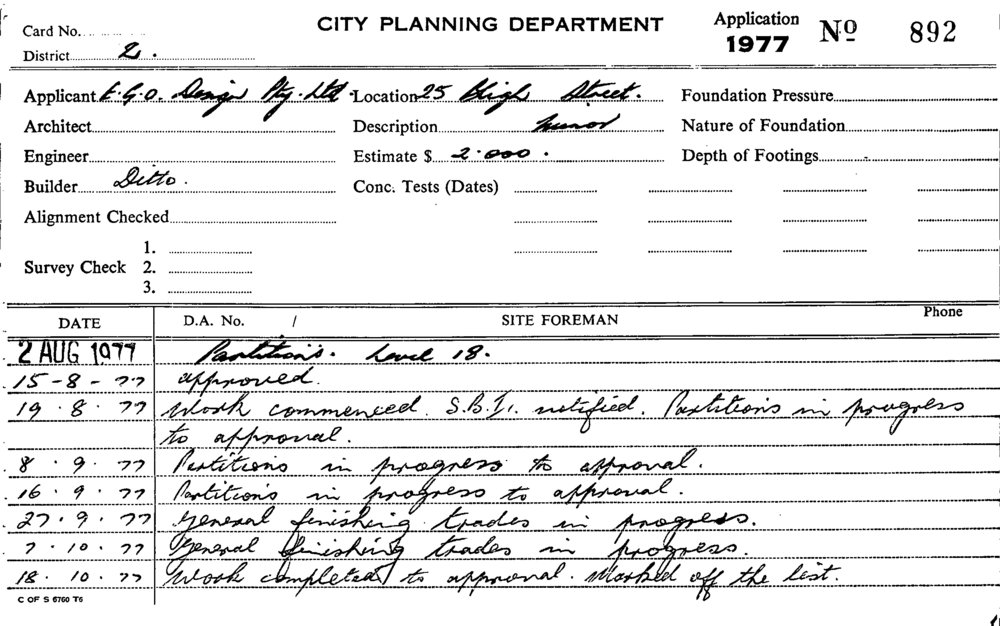 Card No.
CITY PLANNING DEPARTMENT
Application 1977 No 892
District 2.
Applicant E.G.O. Design Pty. Ltd. Location 25 Bligh Street. Foundation Pressure
Architect Description Minor Nature of Foundation
Engineer Estimate $ 2.000. Depth of Footings
Builder Ditto. Conc. Tests (Dates)
Alignment Checked
1.
Survey Check 2.
3.
DATE D.A. No. / SITE FOREMAN Phone
2 AUG 1977 Partitions. Level 18.
15-8-77 approved.
19.8.77 Work commenced. S.B.I. notified. Partitions in progress
to approval.
8.9.77 Partitions in progress to approval.
16.9.77 Partitions in progress to approval.
27.9.77 General finishing trades in progress.
7.10.77 General finishing trades in progress.
18.10.77 Work completed to approval. Marked off the list.
C OF S 6760 T6